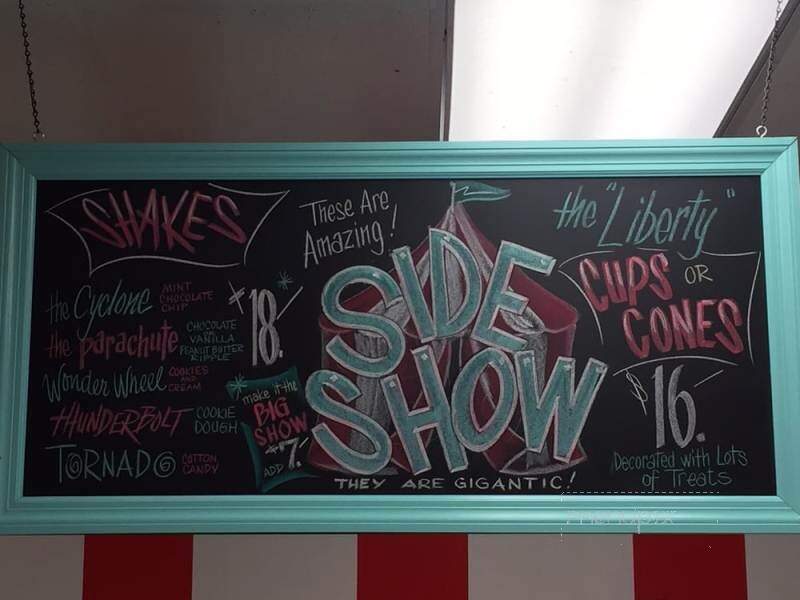 SHAKES
the Cyclone MINT CHOCOLATE CHIP
the parachute CHOCOLATE VANILLA PEANUT BUTTER RIPPLE
Wonder Wheel COOKIES AND CREAM
THUNDERBOLT COOKIE DOUGH
TORNADO COTTON CANDY
$18.
make it the
BIG
SHOW
ADD $7.
These Are
Amazing!
SIDE
SHOW
THEY ARE GIGANTIC!
the "Liberty"
CUPS OR
CONES
$16.
Decorated with Lots
of Treats